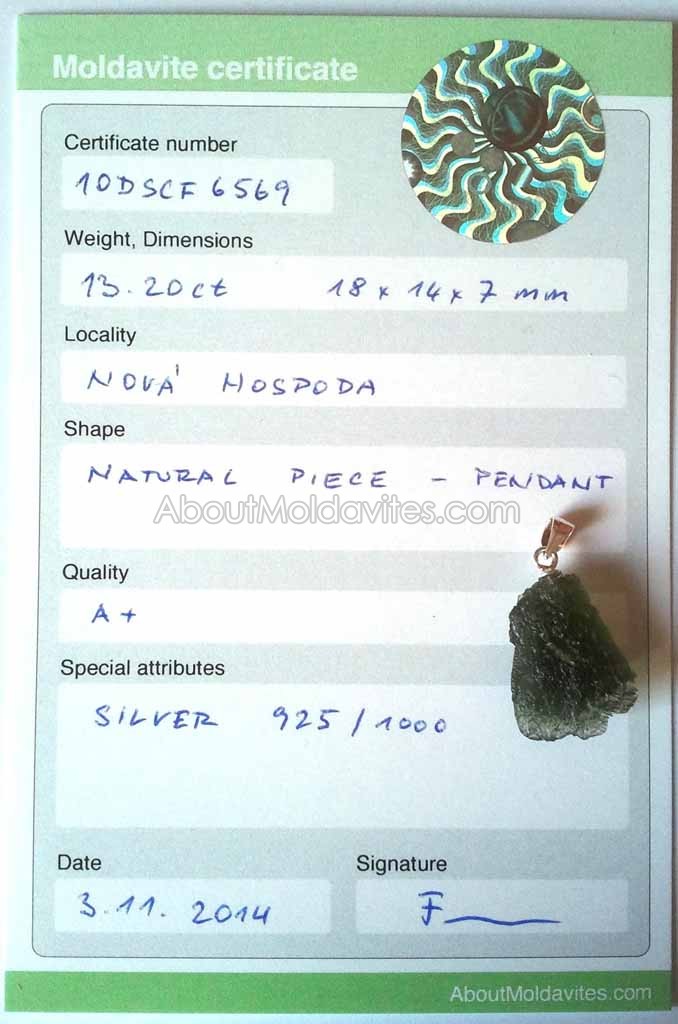 Moldavite certificate
Certificate number
10DSCF6569
Weight, Dimensions
13.20ct 18 x 14 x 7 mm
Locality
NOVÁ HOSPODA
Shape
NATURAL PIECE - PENDANT
AboutMoldavites.com
Quality
A+
Special attributes
SILVER 925/1000
Date Signature
3.11. 2014
AboutMoldavites.com